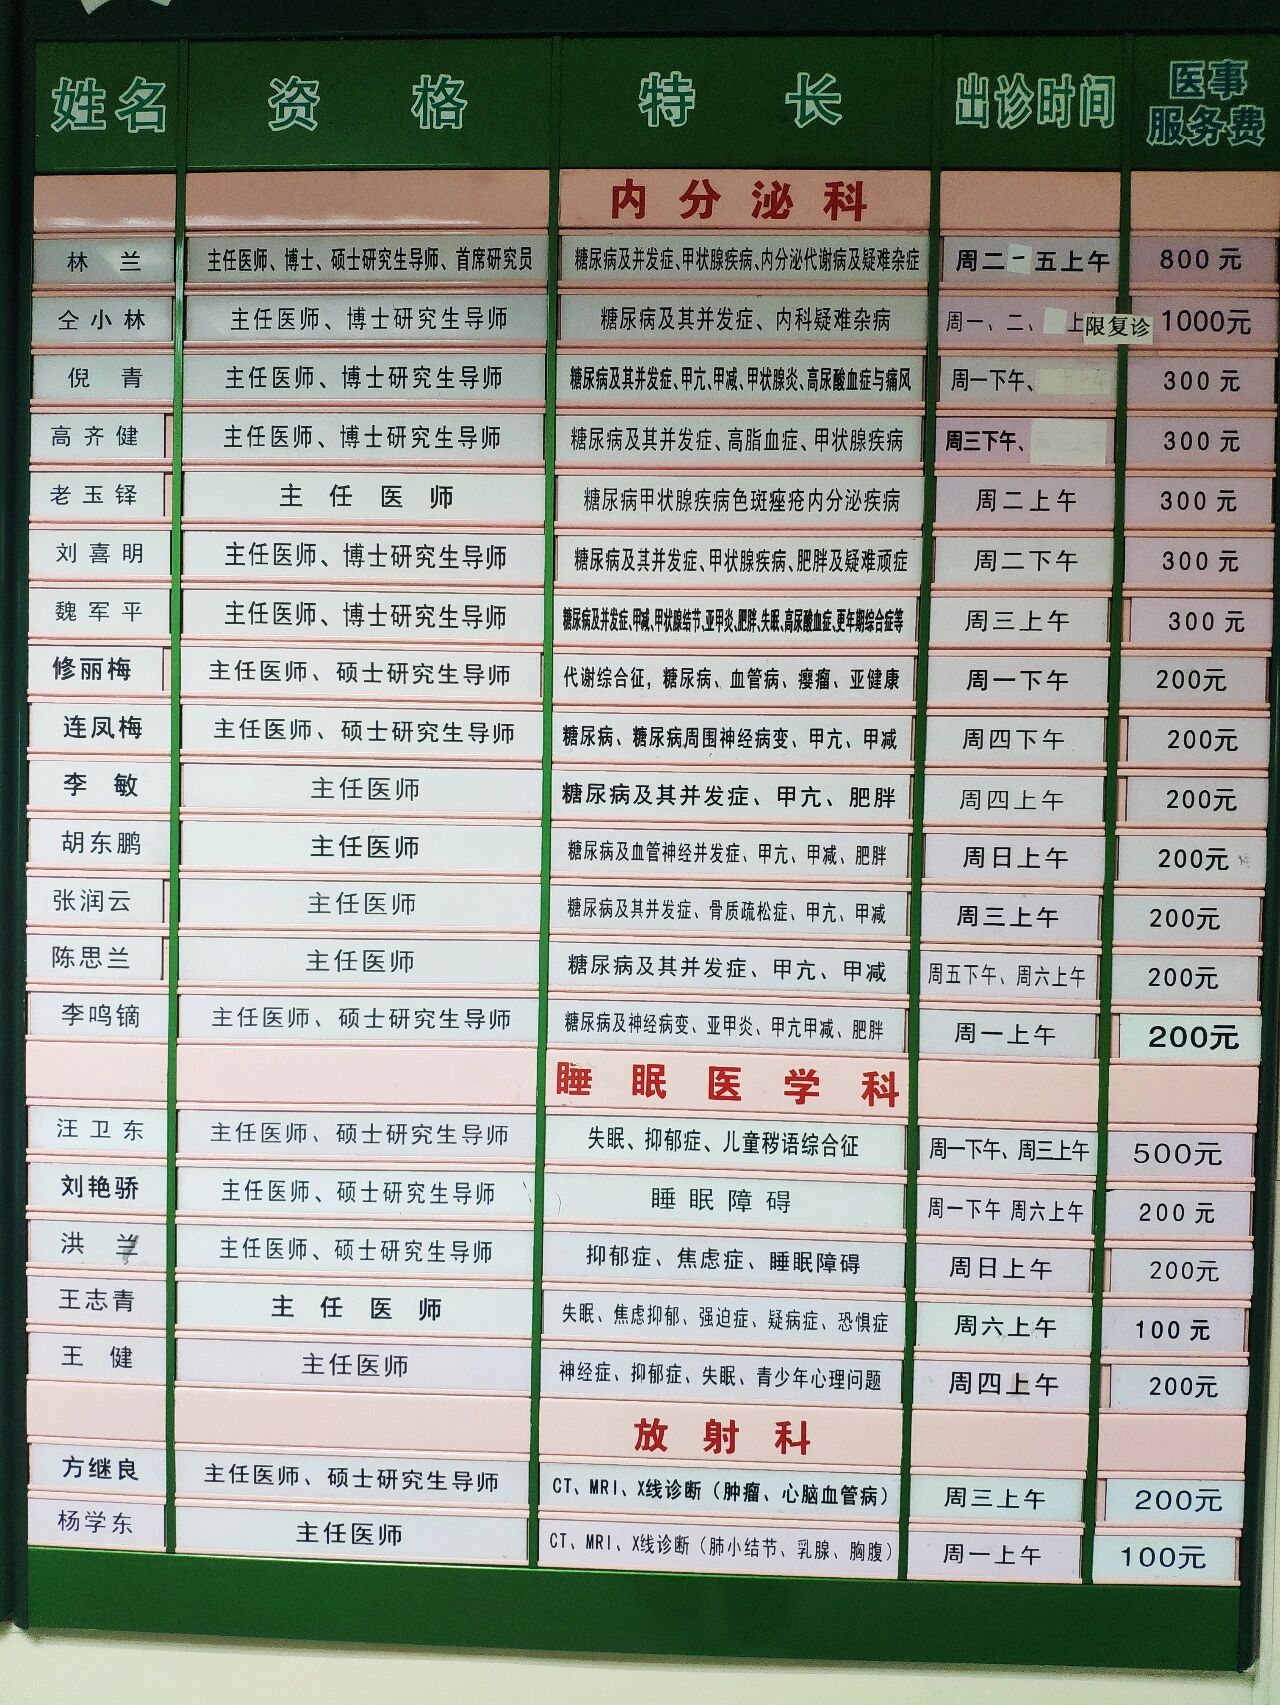 姓名 资格 特长 出诊时间 医事服务费
内分泌科
林兰 主任医师、博士、硕士研究生导师、首席研究员 糖尿病及并发症、甲状腺疾病、内分泌代谢病及疑难杂症 周二 五上午 800元
仝小林 主任医师、博士研究生导师 糖尿病及其并发症、内科疑难杂病 周一、二、 上 限复诊 1000元
倪青 主任医师、博士研究生导师 糖尿病及其并发症、甲亢、甲减、甲状腺炎、高尿酸血症与痛风 周一下午、 300元
高齐健 主任医师、博士研究生导师 糖尿病及其并发症、高脂血症、甲状腺疾病 周三下午、 300元
老玉铎 主任医师 糖尿病甲状腺疾病色斑痤疮内分泌疾病 周二上午 300元
刘喜明 主任医师、博士研究生导师 糖尿病及其并发症、甲状腺疾病、肥胖及疑难顽症 周二下午 300元
魏军平 主任医师、博士研究生导师 糖尿病及并发症、甲减、甲状腺结节、亚甲炎、肥胖、失眠、高尿酸血症、更年期综合症等 周三上午 300元
修丽梅 主任医师、硕士研究生导师 代谢综合征，糖尿病、血管病、瘿瘤、亚健康 周一下午 200元
连凤梅 主任医师、硕士研究生导师 糖尿病、糖尿病周围神经病变、甲亢、甲减 周四下午 200元
李敏 主任医师 糖尿病及其并发症、甲亢、肥胖 周四上午 200元
胡东鹏 主任医师 糖尿病及血管神经并发症、甲亢、甲减、肥胖 周日上午 200元
张润云 主任医师 糖尿病及其并发症、骨质疏松症、甲亢、甲减 周三上午 200元
陈思兰 主任医师 糖尿病及其并发症、甲亢、甲减 周五下午、周六上午 200元
李鸣镝 主任医师、硕士研究生导师 糖尿病及神经病变、亚甲炎、甲亢甲减、肥胖 周一上午 200元
睡眠医学科
汪卫东 主任医师、硕士研究生导师 失眠、抑郁症、儿童秽语综合征 周一下午、周三上午 500元
刘艳骄 主任医师、硕士研究生导师 睡眠障碍 周一下午 周六上午 200元
洪兰 主任医师、硕士研究生导师 抑郁症、焦虑症、睡眠障碍 周日上午 200元
王志青 主任医师 失眠、焦虑抑郁、强迫症、疑病症、恐惧症 周六上午 100元
王健 主任医师 神经症、抑郁症、失眠、青少年心理问题 周四上午 200元
放射科
方继良 主任医师、硕士研究生导师 CT、MRI、X线诊断（肿瘤、心脑血管病） 周三上午 200元
杨学东 主任医师 CT、MRI、X线诊断（肺小结节、乳腺、胸腹） 周一上午 100元